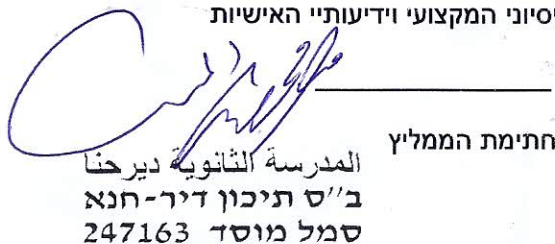 יסיוני המקצועי וידיעותיי האישיות
חתימת הממליץ
المدرسة الثانوية ديرحنا
ב"ס תיכון דיר-חנא
סמל מוסד 247163